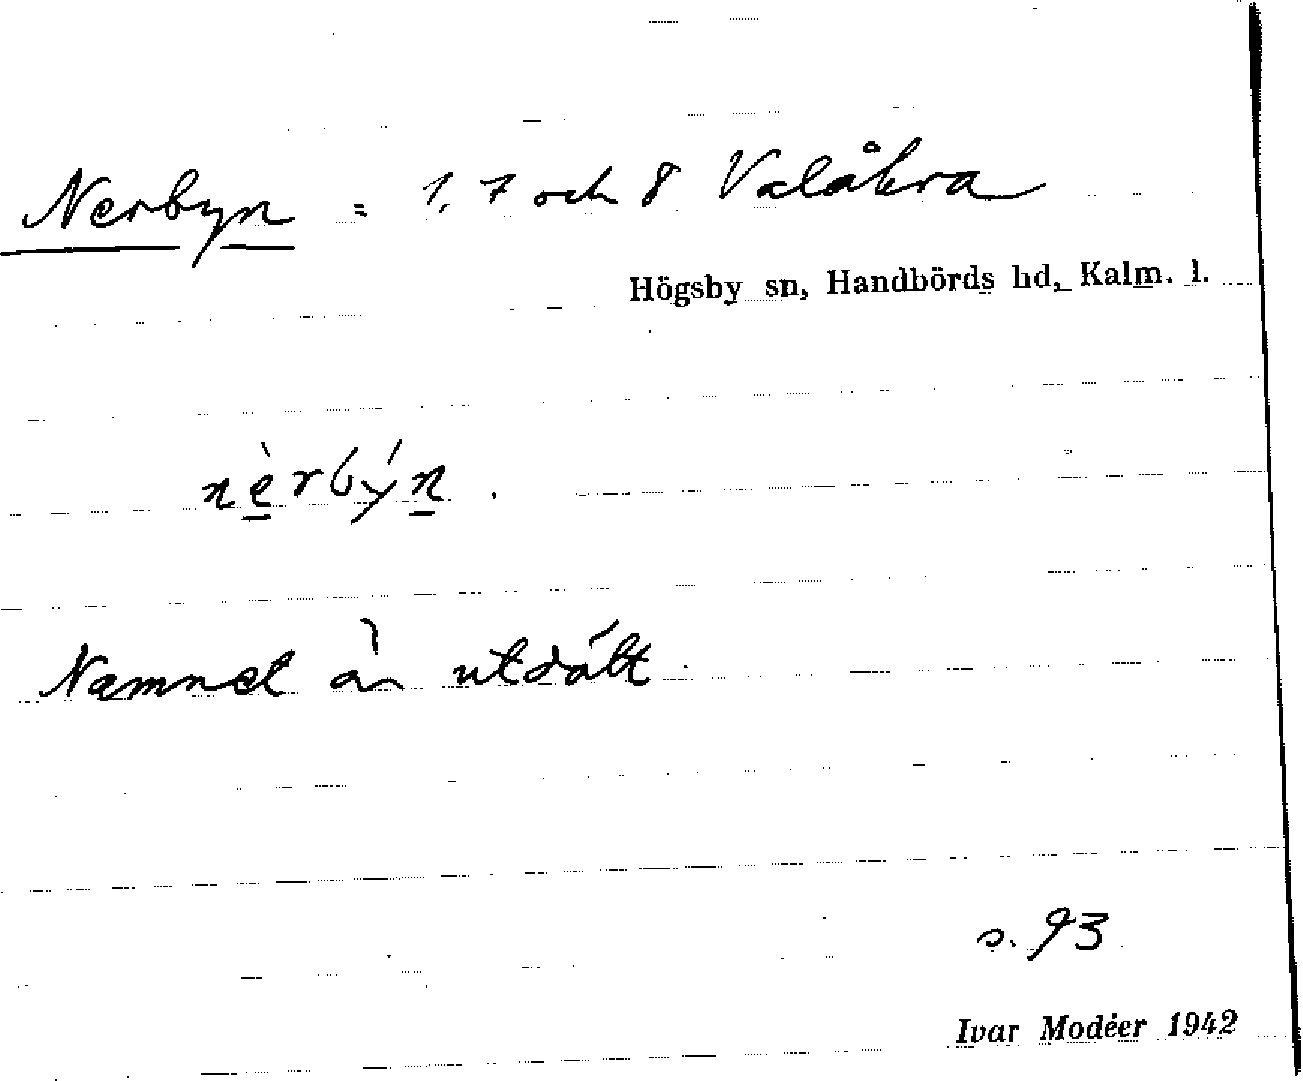 Nerbyn = 1, 7 och 8 Valåkra
Högsby sn, Handbörds hd, Kalm. l.
nèrbýn.
Namnet är utdött.
s. 93
Ivar Modéer 1942